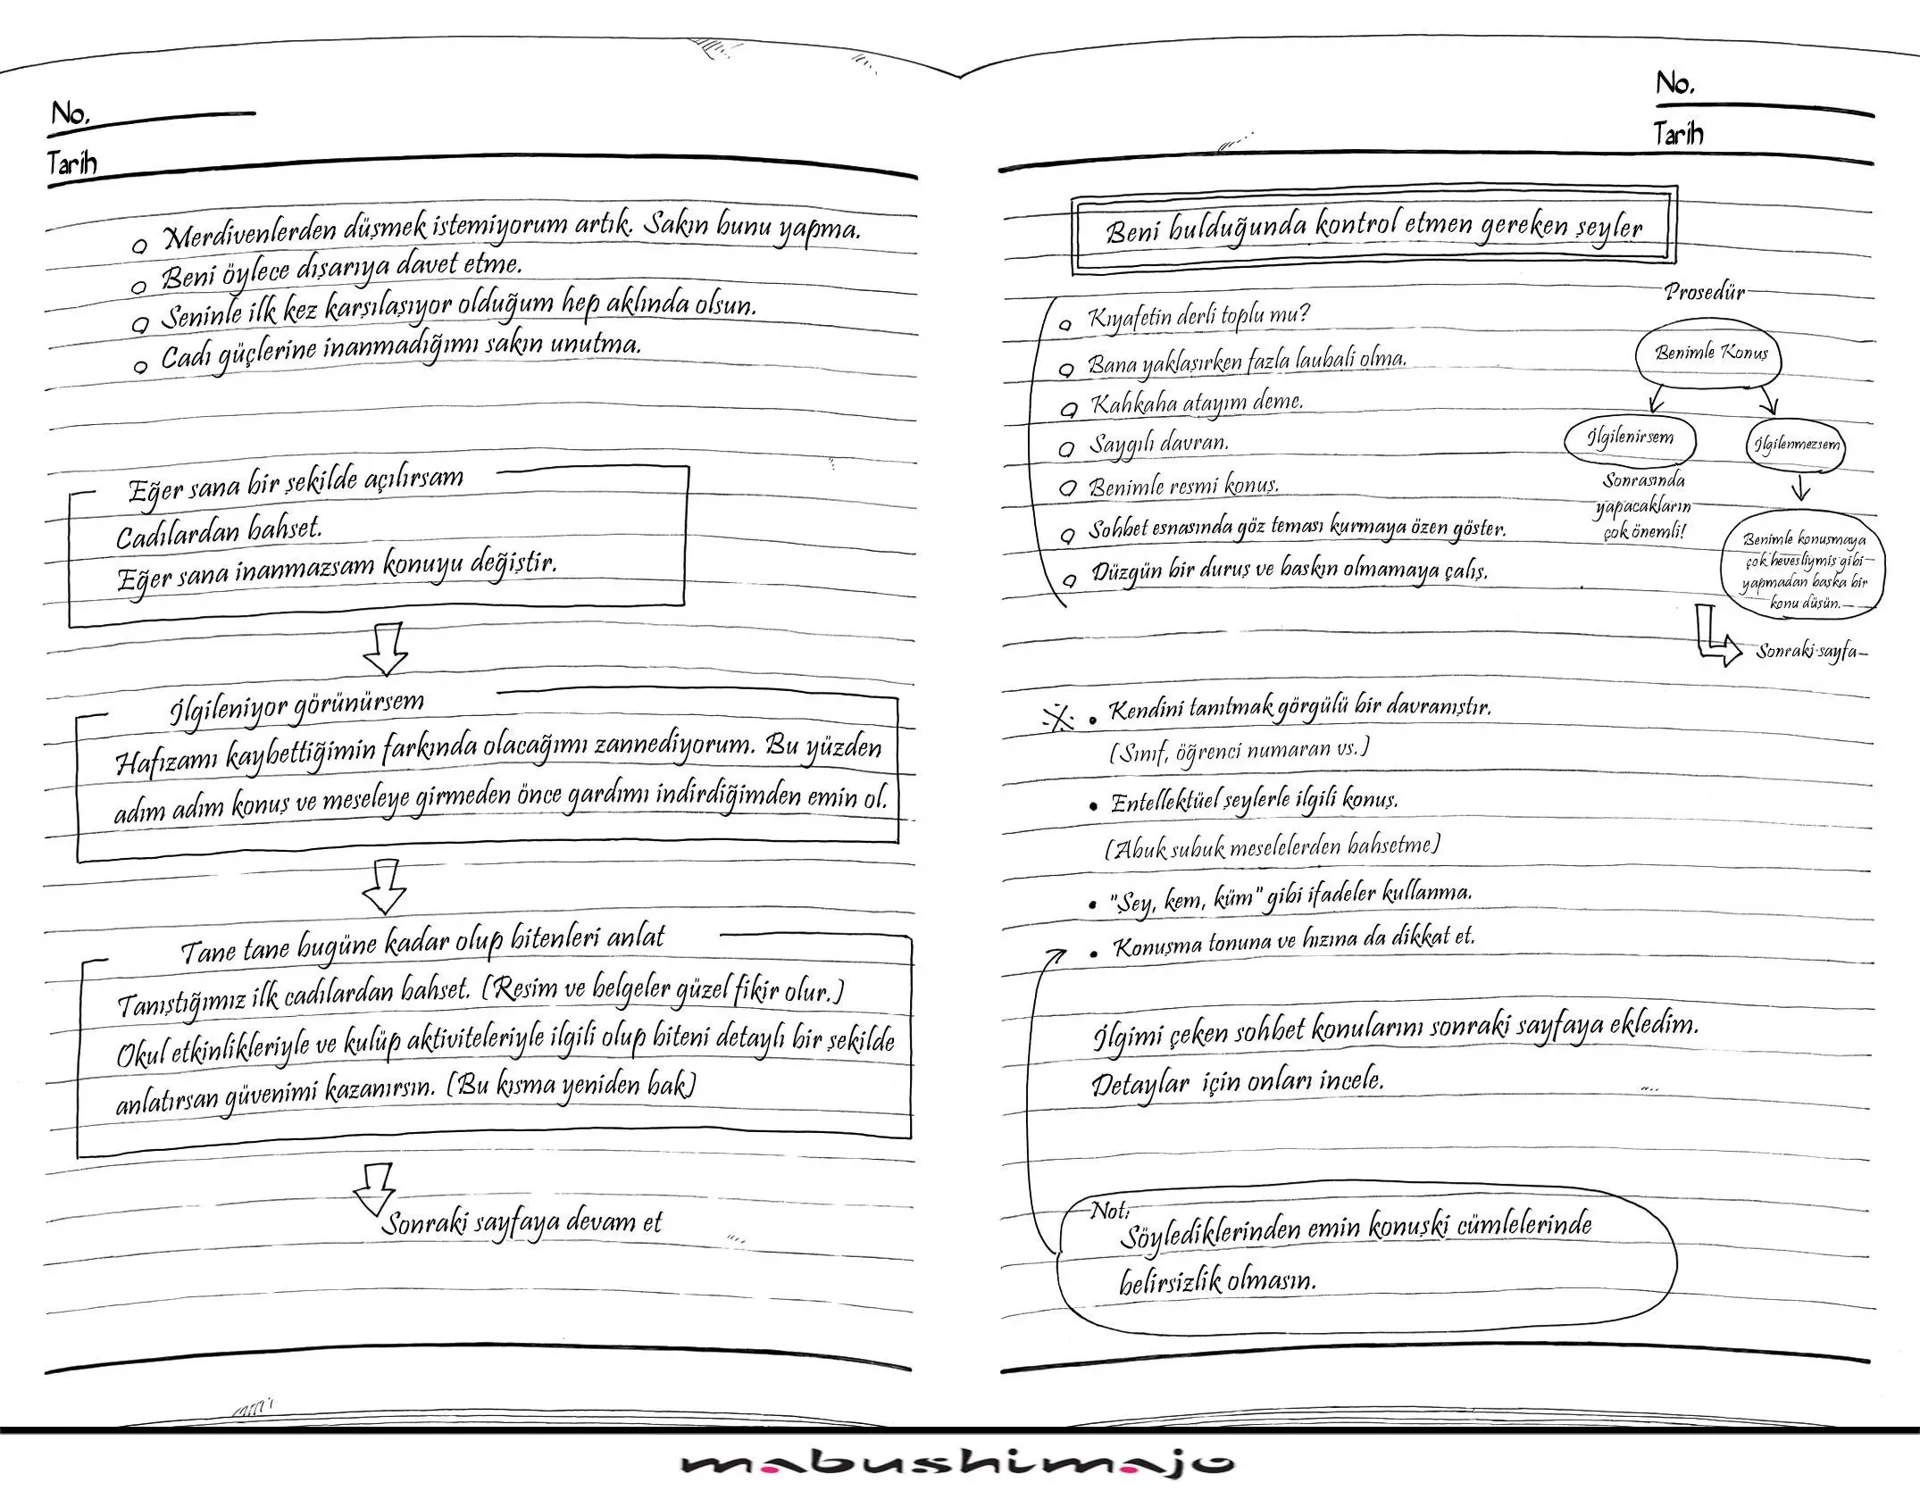 No.
Tarih
Merdivenlerden düşmek istemiyorum artık. Sakın bunu yapma.
Beni öylece dışarıya davet etme.
Seninle ilk kez karşılaşıyor olduğum hep aklında olsun.
Cadı güçlerine inanmadığımı sakın unutma.
Eğer sana bir şekilde açılırsam
Cadılardan bahset.
Eğer sana inanmazsam konuyu değiştir.
İlgileniyor görünürsem
Hafızamı kaybettiğimin farkında olacağımı zannediyorum. Bu yüzden
adım adım konuş ve meseleye girmeden önce gardımı indirdiğimden emin ol.
Tane tane bugüne kadar olup bitenleri anlat
Tanıştığımız ilk cadılardan bahset. (Resim ve belgeler güzel fikir olur.)
Okul etkinlikleriyle ve kulüp aktiviteleriyle ilgili olup biteni detaylı bir şekilde
anlatırsan güvenimi kazanırsın. (Bu kısma yeniden bak)
Sonraki sayfaya devam et
No.
Tarih
Beni bulduğunda kontrol etmen gereken şeyler
Kıyafetin derli toplu mu?
Bana yaklaşırken fazla laubali olma.
Kahkaha atayım deme.
Saygılı davran.
Benimle resmi konuş.
Sohbet esnasında göz teması kurmaya özen göster.
Düzgün bir duruş ve baskın olmamaya çalış.
Prosedür
Benimle Konuş
İlgilenirsem
Sonrasında
yapacakların
çok önemli!
İlgilenmezsem
Benimle konuşmaya
çok hevesliymiş gibi
yapmadan başka bir
konu düşün.
Sonraki sayfa
Kendini tanıtmak görgülü bir davranıştır.
(Sınıf, öğrenci numaran vs.)
Entellektüel şeylerle ilgili konuş.
(Abuk subuk meselelerden bahsetme)
"Şey, kem, küm" gibi ifadeler kullanma.
Konuşma tonuna ve hızına da dikkat et.
İlgimi çeken sohbet konularını sonraki sayfaya ekledim.
Detaylar için onları incele.
Not:
Söylediklerinden emin konuşki cümlelerinde
belirsizlik olmasın.
mabushimajo